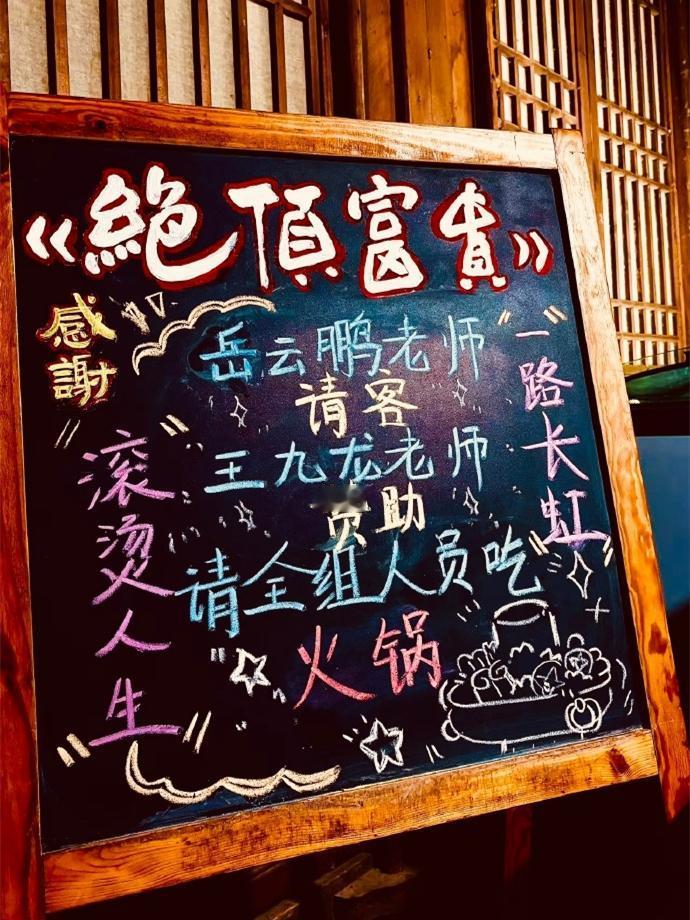 《絕頂富貴》
感謝
岳云鹏老师
请客
王九龙老师
助
请全组人员吃
火锅
滚烫人生
一路长虹